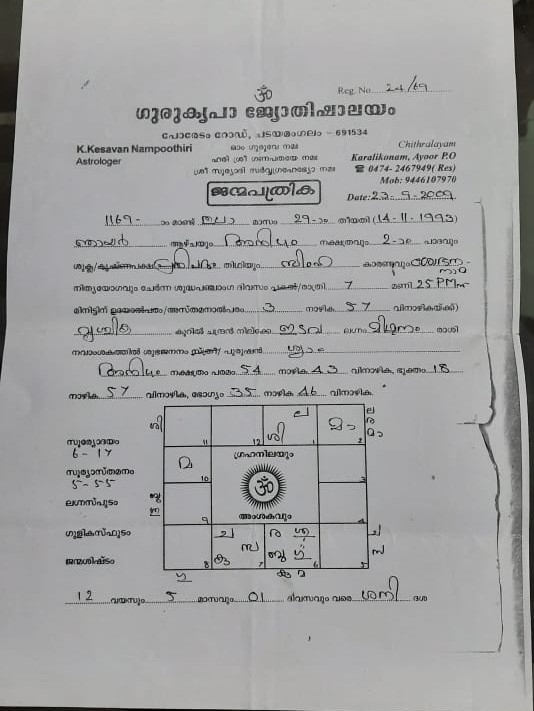 ॐ
Reg. No. 24/69
ഗുരുകൃപാ ജ്യോതിഷാലയം
പോരേടം റോഡ്, ചടയമംഗലം – 691534
K.Kesavan Nampoothiri
Astrologer
ഓം ഗുരുവേ നമഃ
ഹരി ശ്രീ ഗണപതയെ നമഃ
ശ്രീ സൂര്യാദി സർവ്വഗ്രഹേഭ്യോ നമഃ
Chithralayam
Karalikonam, Ayoor P.O
☎ 0474- 2467949( Res)
Mob: 9446107970
ജന്മപത്രിക
Date: 23-9-2009
1169- ാം മാണ്ട് തുലാ മാസം 29-ാം തീയതി (14-11-1993)
ഞായർ ആഴ്ചയും അനിഴം നക്ഷത്രവും 2-ാം പാദവും
ശുക്ല/കൃഷ്ണപക്ഷ തിഥിയും സിംഹ കാരണവും
നിത്യയോഗവും ചേർന്ന ശുദ്ധപഞ്ചാംഗ ദിവസം പകൽ/രാത്രി 7 മണി 25 PM
മിനിട്ടിന് ഉദയാൽപരം/അസ്തമനാൽപരം 3 നാഴിക 57 വിനാഴികയ്ക്ക്
വൃശ്ചിക കൂറിൽ ചന്ദ്രൻ നില്ക്കെ ഇടവ ലഗ്നം മിഥുനം രാശി
നവാംശകത്തിൽ ശുഭജനനം സ്ത്രീ/ പുരുഷൻ
അനിഴം നക്ഷത്രം പരമം 54 നാഴിക 43 വിനാഴിക, ഭുക്തം 18
നാഴിക 57 വിനാഴിക, ഭോഗ്യം 35 നാഴിക 46 വിനാഴിക.
ശി 11 12 ശി ല 1 മാ ല ര മാ
സൂര്യോദയം
6 - 17
മ 10
ഗ്രഹനിലയും
സൂര്യാസ്തമനം
5 - 55
ॐ
ലഗ്നസ്ഫുടം
ബു 9
അംശകവും
ഗുളികസ്ഫുടം
ച സ കു ര ശു ബു ഗു ച സ
ജന്മശിഷ്ടം
8 7 6 5
ഗു കു മ
12 വയസും 5 മാസവും 01 ദിവസവും വരെ ശനി ദശ